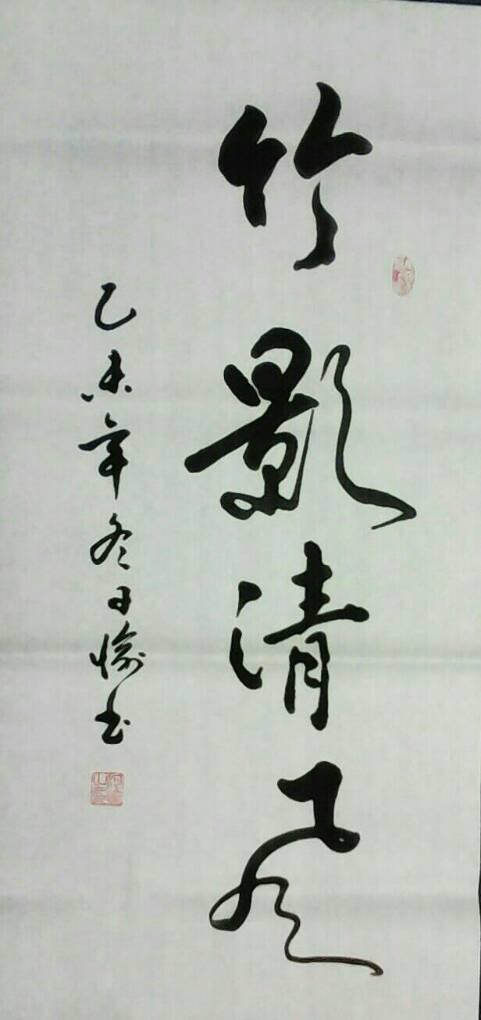 竹影清风
乙未年冬日愉书